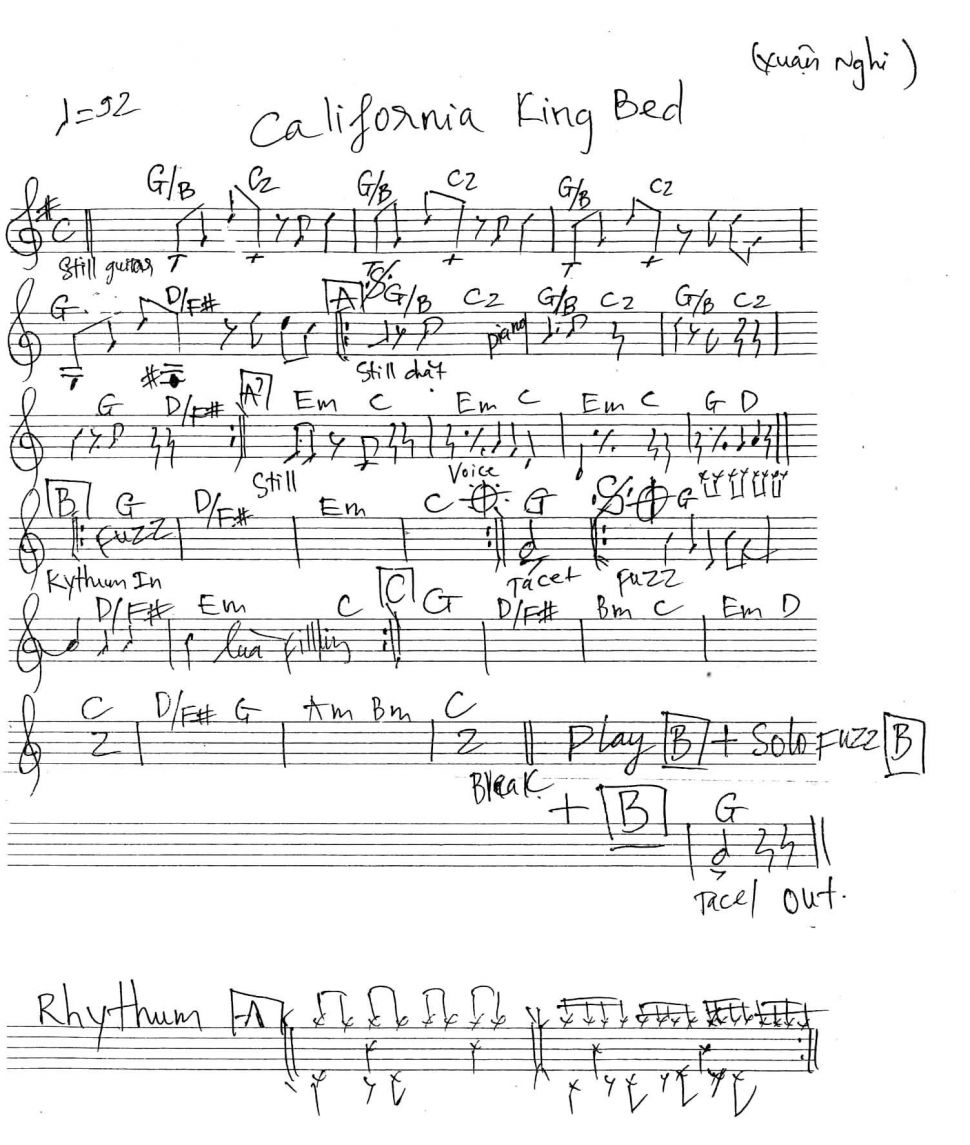 (Xuân Nghi)
♩=92
California King Bed
G/B C2 G/B C2 G/B C2
C
Still guitar
G D/F# A G/B C2 G/B C2 G/B C2
piano
Still chát
G D/F# A' Em C Em C Em C G D
Still Voice
B G D/F# Em C G G
Fuzz
Rythum In Tacet Fuzz
D/F# Em C C G D/F# Bm C Em D
lùa filling
C D/F# G Am Bm C
2 2 Play B + Solo Fuzz B
Break
+ B G
Tacet Out.
Rhythum A